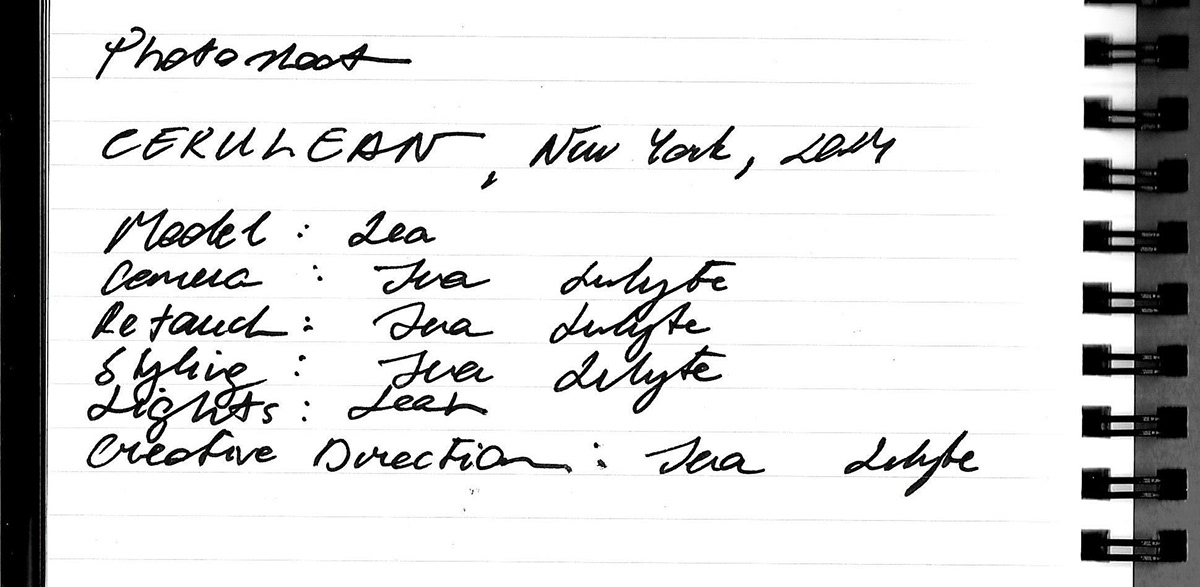 Photoshoot
CERULEAN, New York, 2024
Model: Lea
Camera: Ieva Lulyte
Retouch: Ieva Lulyte
Styling: Ieva Lulyte
Lights: Lear
Creative Direction: Ieva Lulyte